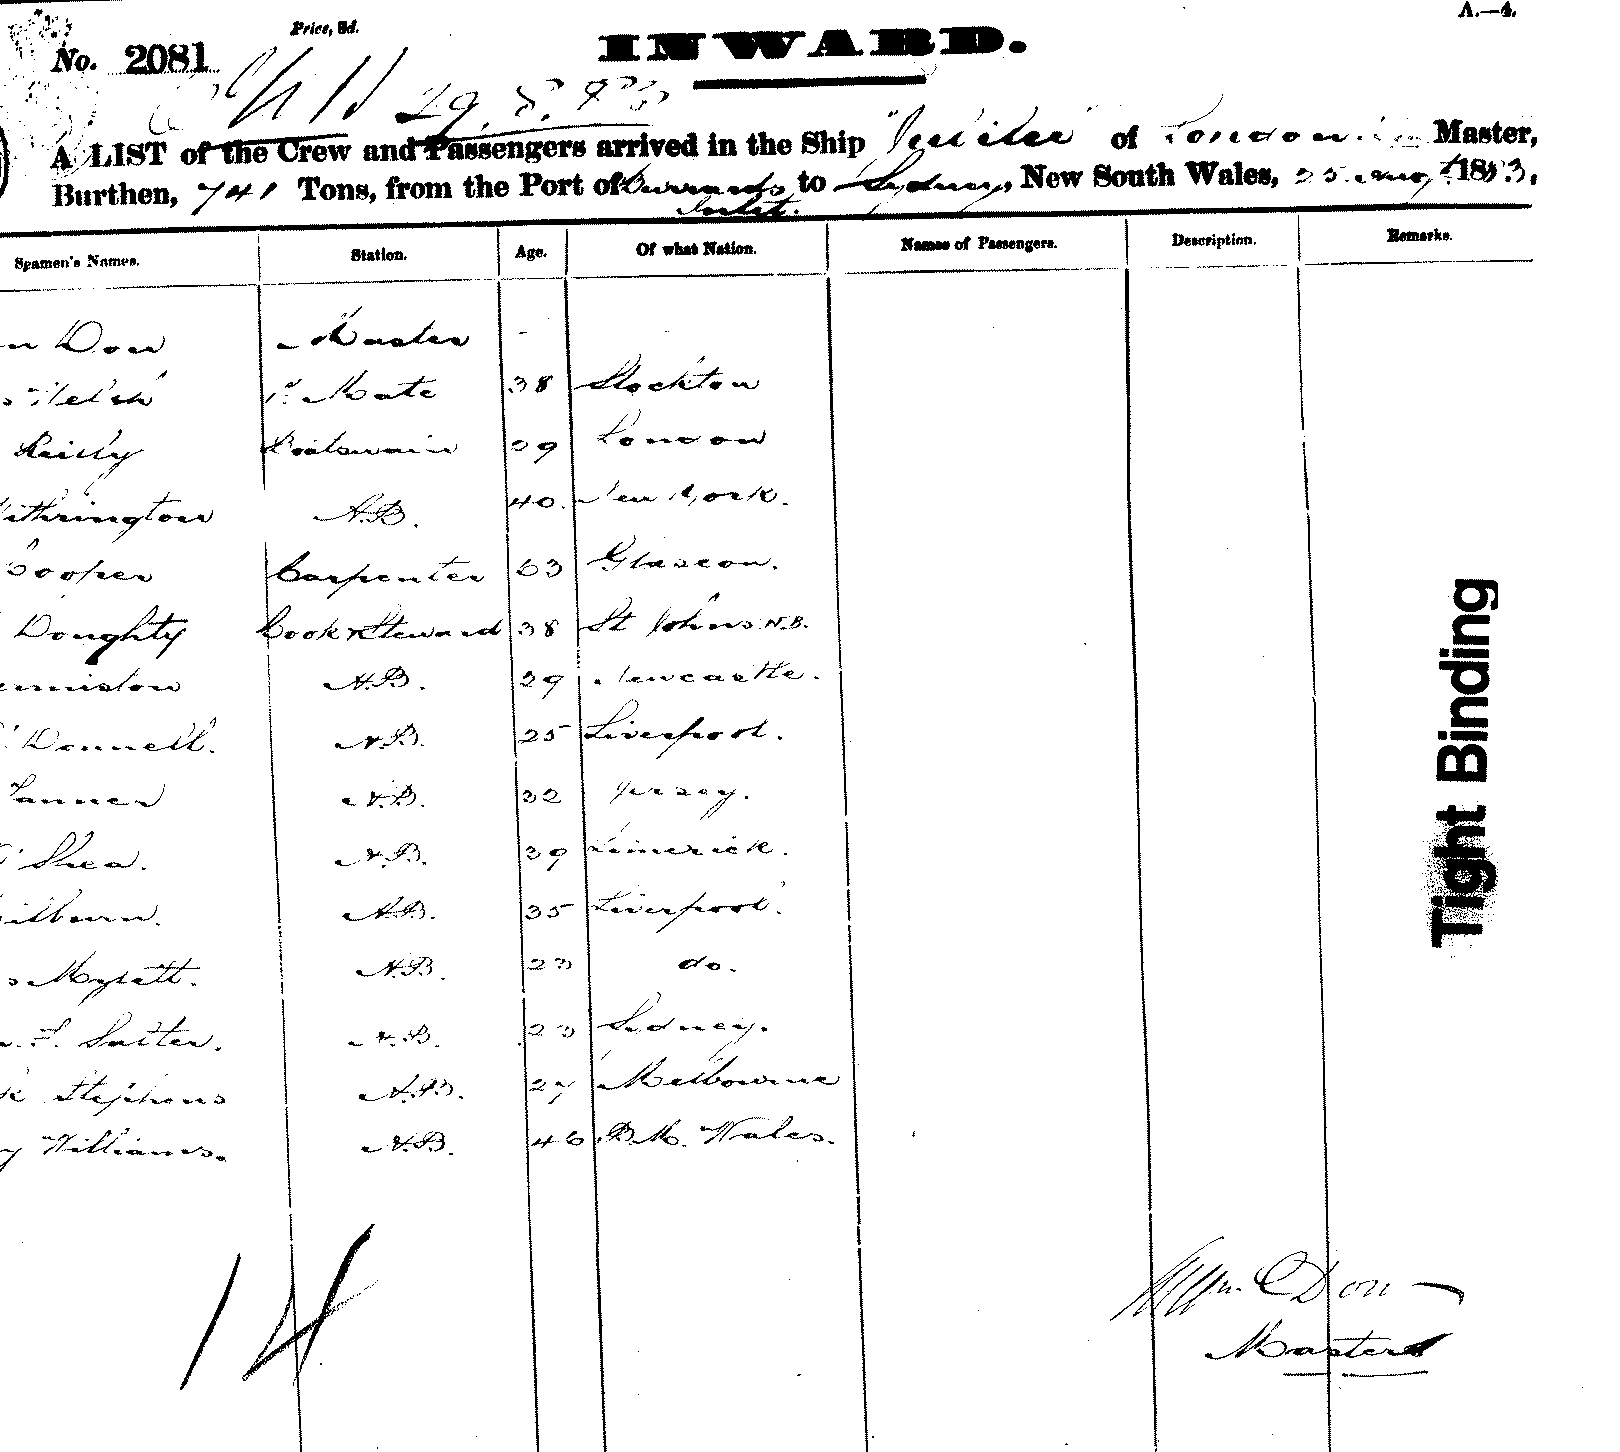 A.—4.
Price, 3d.
No. 2081
INWARD.
29. 8.
A LIST of the Crew and Passengers arrived in the Ship of London Master,
Burthen, 741 Tons, from the Port of Burrards Inlet. to Sydney, New South Wales, 25 Aug 1883,
Seamen's Names. Station. Age. Of what Nation. Names of Passengers. Description. Remarks.
Don Master
Welsh 1st Mate 38 Stockton
Reilly Boatswain 39 London
A.B. 40. New York.
Cooper Carpenter 63 Glascow.
Doughty Cook & Steward 38 St Johns N.B.
A.B. 29 Newcastle.
Donnell. A.B. 25 Liverpool.
Tanner A.B. 32 Jersey.
O'Shea. A.B. 39 Limerick.
A.B. 35 Liverpool.
Myratt. A.B. 23 do.
F. Salter. A.B. 23 Sidney.
Stephens A.B. 27 Melbourne
Williams. A.B. 46 Wales.
14
Wm. C Don
Master
Tight Binding